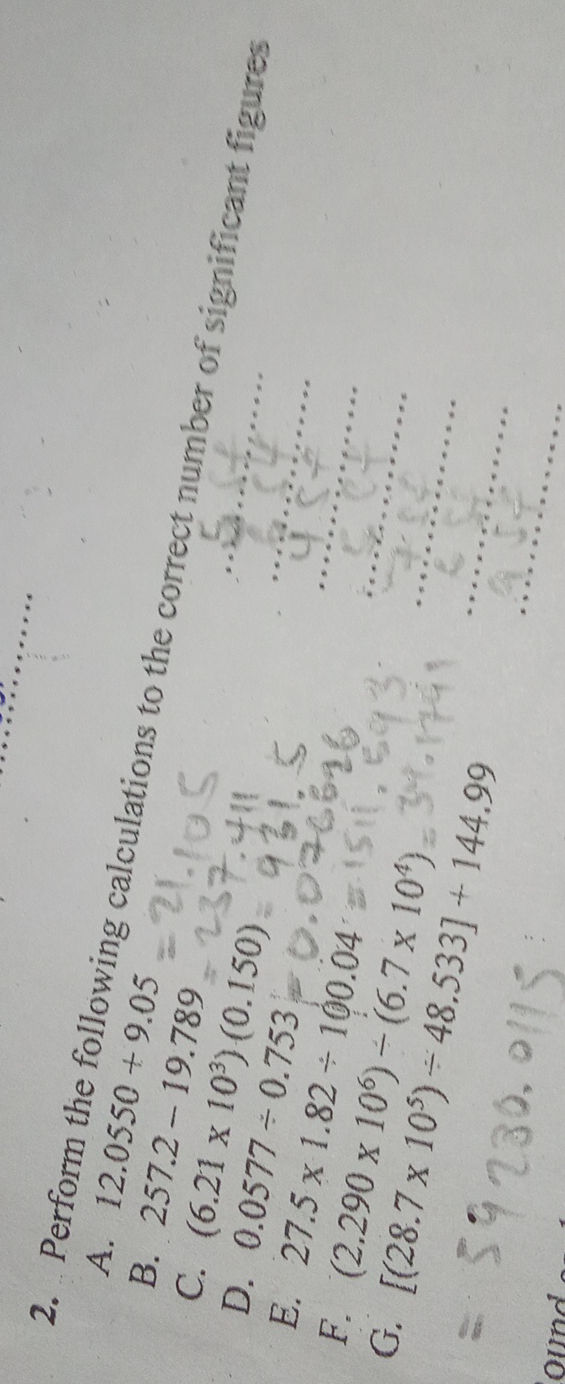 2. Perform the following calculations to the correct number of significant figures
A. 12.0550 + 9.05 = 21.105 .......... 5 sf
B. 257.2 – 19.789 = 237.411 .......... 6 sf
C. (6.21 x 10³) (0.150) = 931.5 .......... 4 sf
D. 0.0577 ÷ 0.753 = ..........
E. 27.5 x 1.82 ÷ 100.04 = 1511.593 ..........
F. (2.290 x 10⁶) ÷ (6.7 x 10⁴) = 34.1791 ..........
G. [(28.7 x 10⁵) ÷ 48.533] + 144.99 .......... 9 sf
= 59280.0115
ound